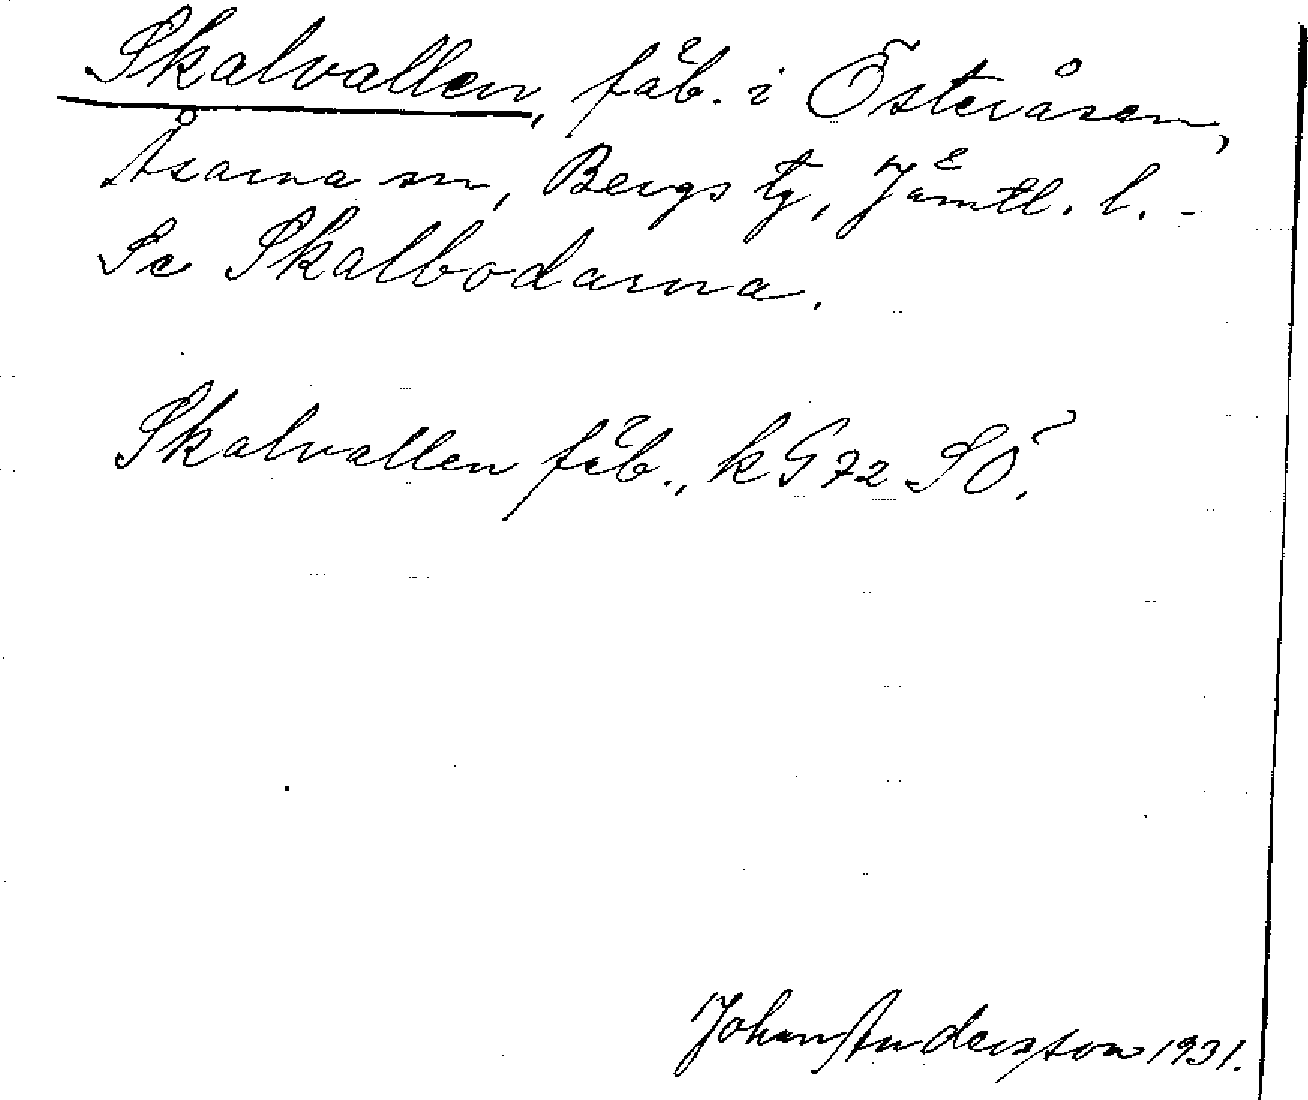 Skalvallen, fäb. i Österåsen,
Åsarna sn, Bergs tg, Jämtl. l. -
Se Skalbodarna.
Skalvallen fäb., kG72 SÖ.
Johan Andersson 1931.